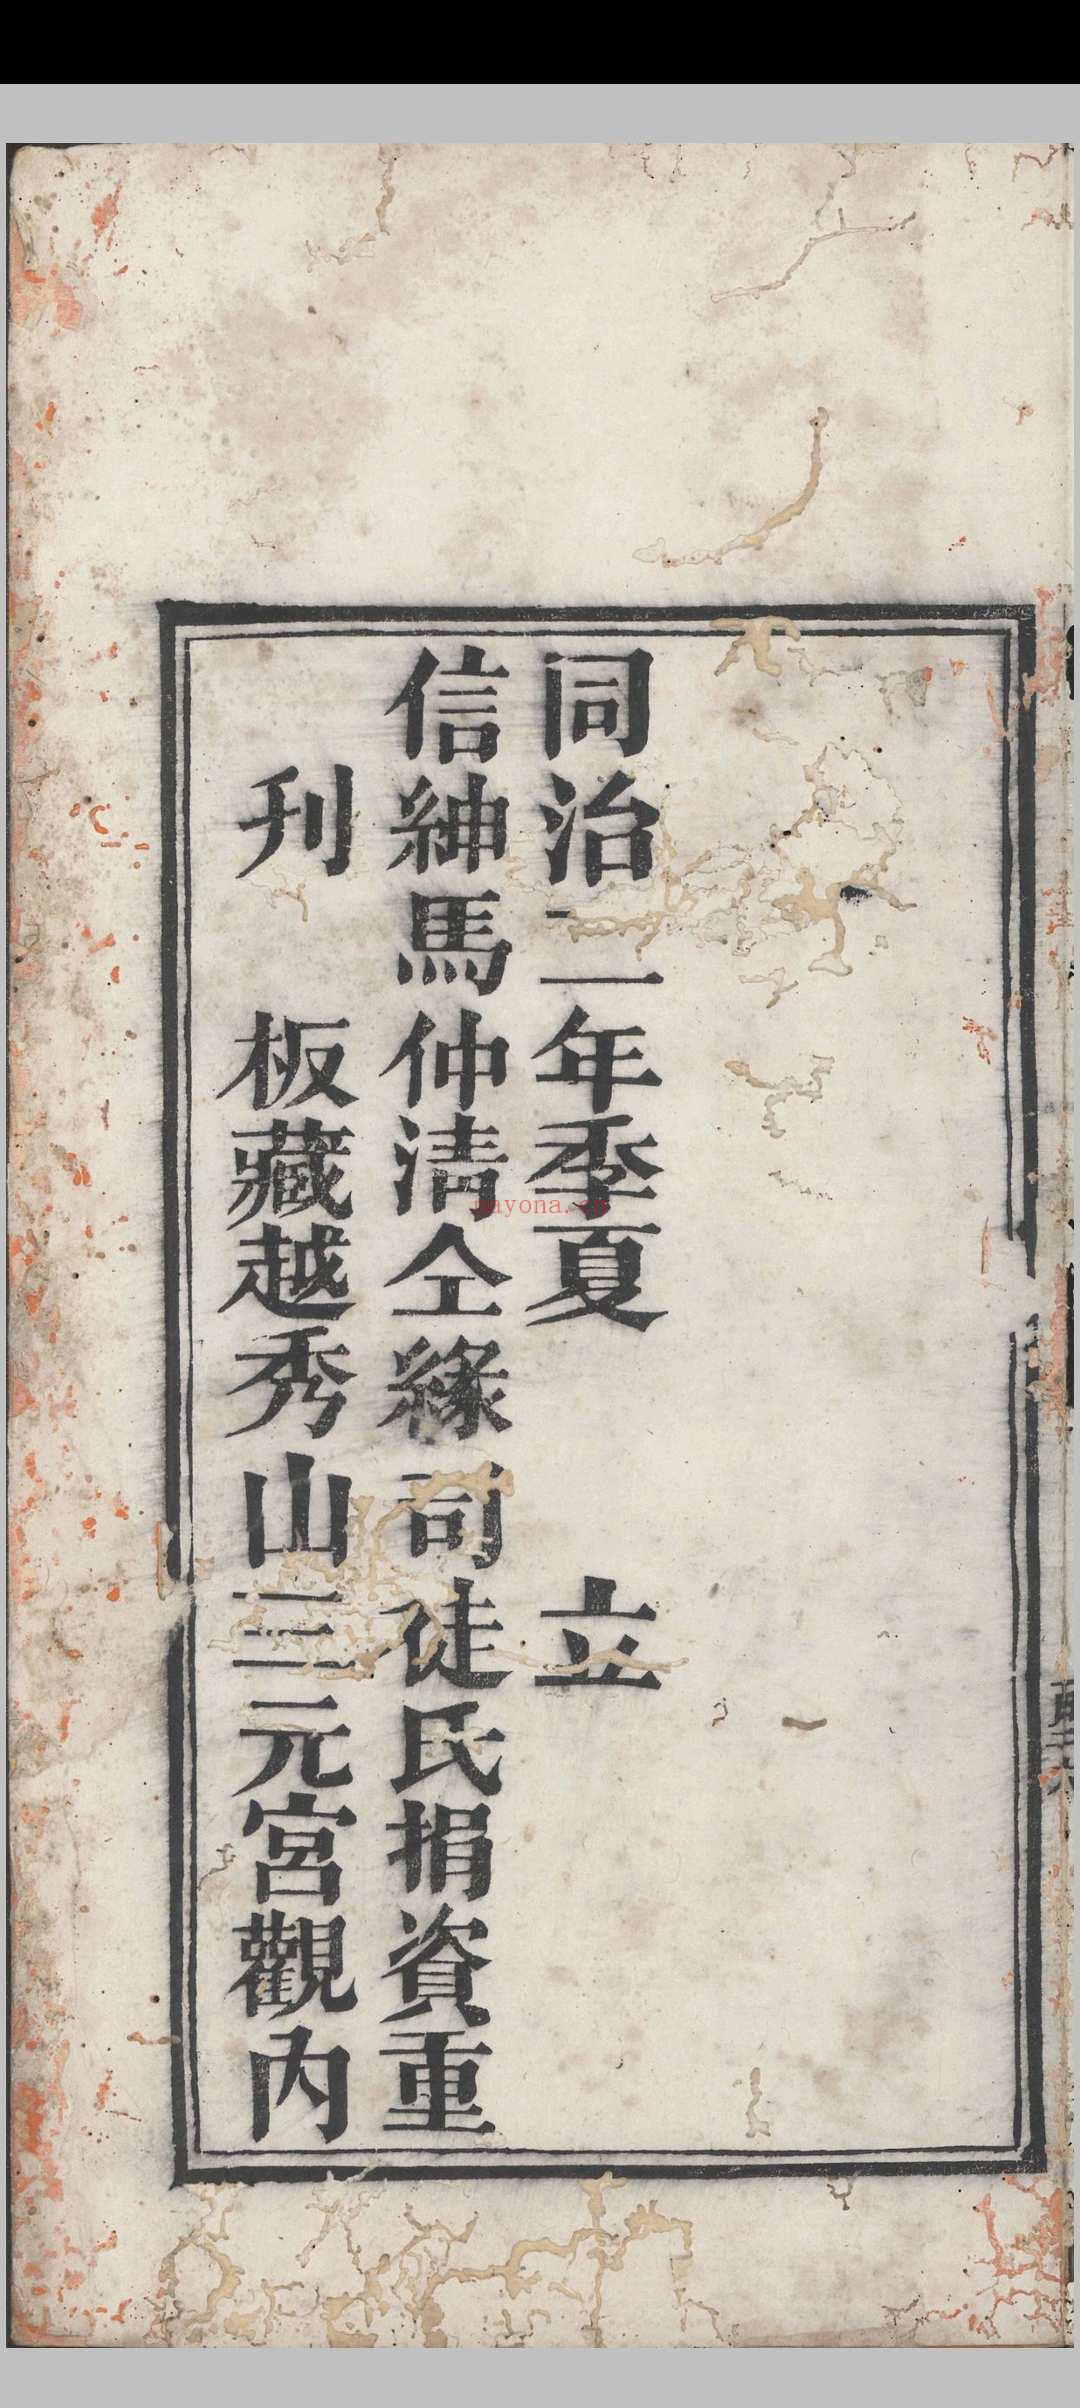 同治二年季夏　立
信紳馬仲淸仝緣司徒氏捐資重
刊　板藏越秀山三元宮觀內
nayona.cn